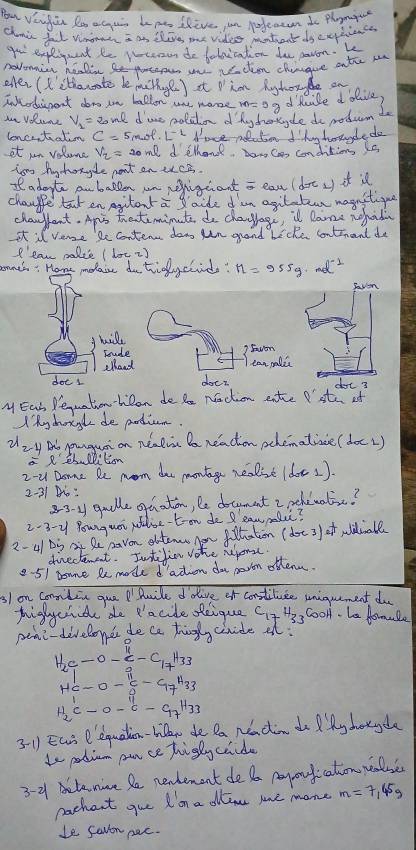 Pour vérifier les acquis de ses élèves, un professeur de Physique
chimie fait visionner à ses élèves une vidéo montrant des expériences
qui expliquent le processus de fabrication du savon. Le
savonnier réalise une réaction chimique entre un
ester (l'éthanoate de méthyle) et l'ion hydroxyde en
introduisant dans un ballon une masse m = 9 g d'huile d'olive,
un volume V1 = 20 ml d'une solution d'hydroxyde de sodium de
concentration C = 5 mol. L-1
et un volume V2 = 20 ml d'éthanol. Dans ces conditions les
ions hydroxyde sont en excès.
Il adapte au ballon un réfrigérant à eau (doc 1) et il
chauffe tout en agitant à l'aide d'un agitateur magnétique
chauffant. Après trente minutes de chauffage, il laisse refroidir
et il verse le contenu dans un grand bécher contenant de
l'eau salée (doc 2)
Données : Masse molaire du triglycéride : M = 955 g. mol-1
huile
soude
éthanol
doc 1
savon
eau salée
doc 2
savon
doc 3
1/ Ecris l'équation-bilan de la réaction entre l'ester et
l'hydroxyde de sodium.
2/ 2-1/ Dis pourquoi on réalise la réaction schématisée (doc 1)
à l'ébullition
2-2/ Donne le nom du montage réalisé (doc 1).
2-3/ Dis :
2-3-1/ quelle opération, le document 2 schématise ?
2-3-2/ Pourquoi utilise-t-on de l'eau salée ?
2-4/ Dis si le savon obtenu par filtration (doc 3) est utilisable
directement. Justifier votre réponse.
2-5/ Donne le mode d'action du savon obtenu.
3/ on considère que l'huile d'olive est constituée uniquement du
triglycéride de l'acide oléique C17H33COOH. La formule
semi-développée de ce triglycéride est :
O
H2C - O - C - C17H33
O
HC - O - C - C17H33
O
H2C - O - C - C17H33
3-1) Ecris l'équation-bilan de la réaction de l'hydroxyde
de sodium sur ce triglycéride
3-2/ Détermine le rendement de la saponification réalisée
sachant que l'on a obtenu une masse m = 7,45 g
de savon sec.